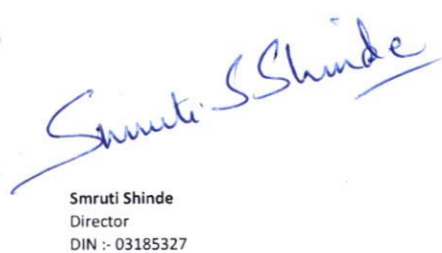 Smruti. S Shinde
Smruti Shinde
Director
DIN :- 03185327